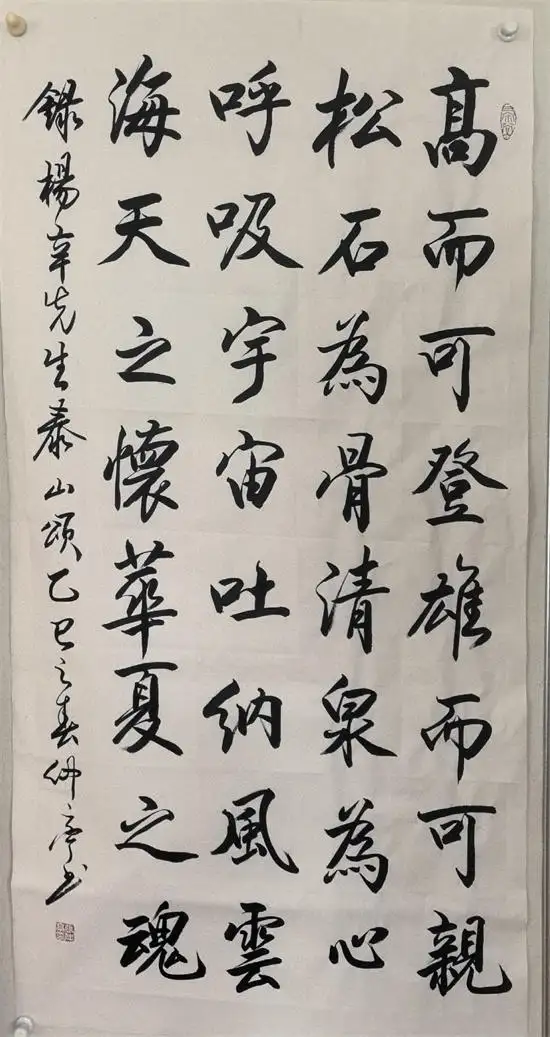 高而可登雄而可親
松石為骨清泉為心
呼吸宇宙吐納風雲
海天之懷華夏之魂
錄楊辛先生泰山頌乙巳之春仲亭书